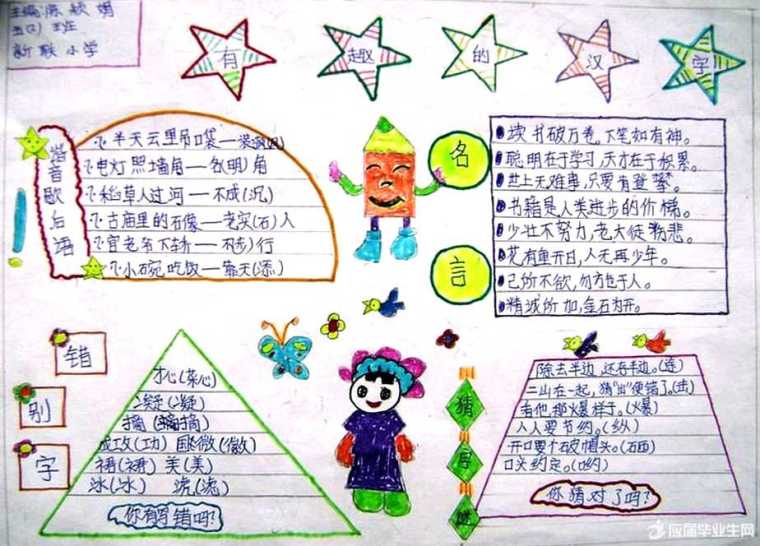 主编 陈 娟
五(2) 班
新联小学
有趣的汉字
谐音歌后语
半天云里吊口袋——装疯
电灯照墙角——名(明)角
稻草人过河——不成(沉)
古庙里的石像——老实(石)人
官老爷下轿——不(步)行
小碗吃饭——靠天(添)
名言
读书破万卷,下笔如有神。
聪明在于学习,天才在于积累。
世上无难事,只要有登攀。
书籍是人类进步的价梯。
少壮不努力,老大徒伤悲。
花有重开日,人无再少年。
己所不欲,勿方也于人。
精诚所加,金石为开。
错别字
心(茶心)
凝(凝)
摘
成攻(功) 微(微)
裙(裙) 美(美)
冰(冰) 流(流)
你有写错吗?
猜字谜
除去半边,还吞半边。(连)
二山在一起,猜“出”便错了。(击)
看他那火爆样子。(火暴)
人人要节约。(纵)
开口要个石破帽头。(石西)
口头约定。(口约)
你猜对了吗?
应届毕业生网